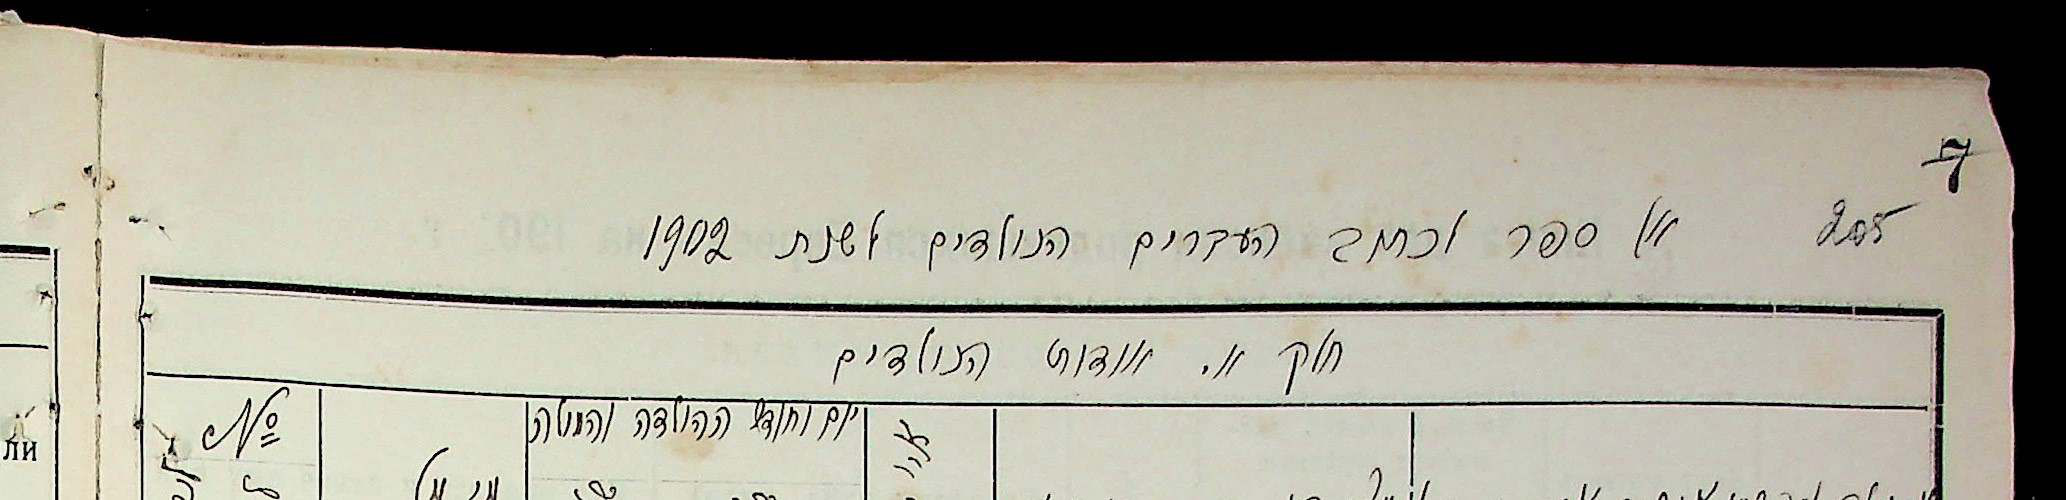 7
205
ספר לכתב העברים הנולדים לשנת 1902
חלק א. אודות הנולדים
№
יום וחודש ההולדה והמילה
ли